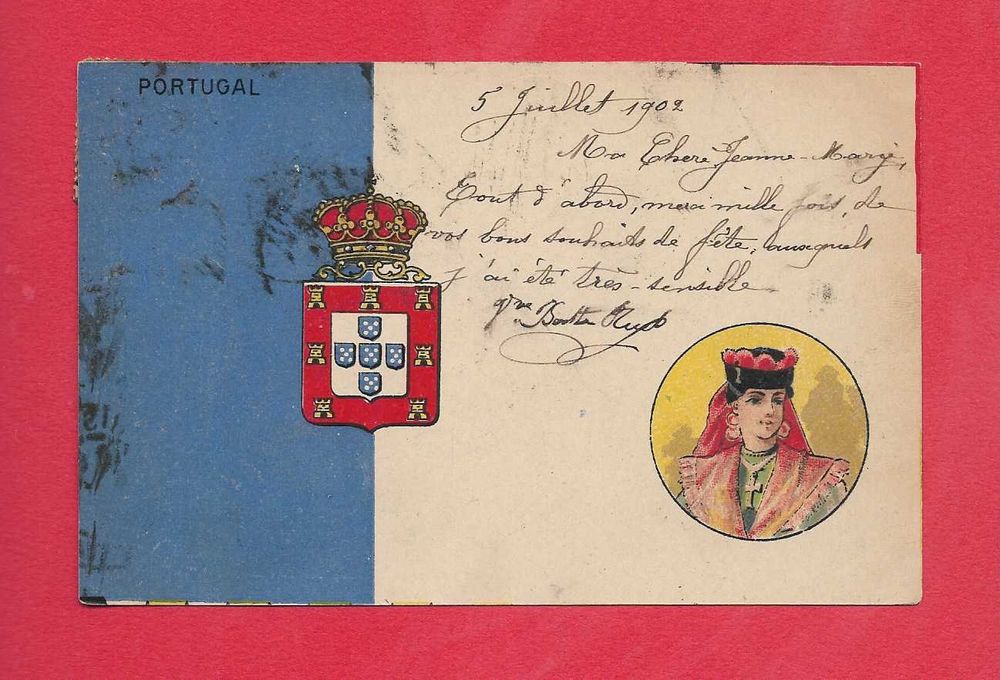 PORTUGAL
5 Juillet 1902
Ma Chère Jeanne-Marie,
Tout d'abord, merci mille fois, de
vos bons souhaits de fête, auxquels
j'ai été très-sensible